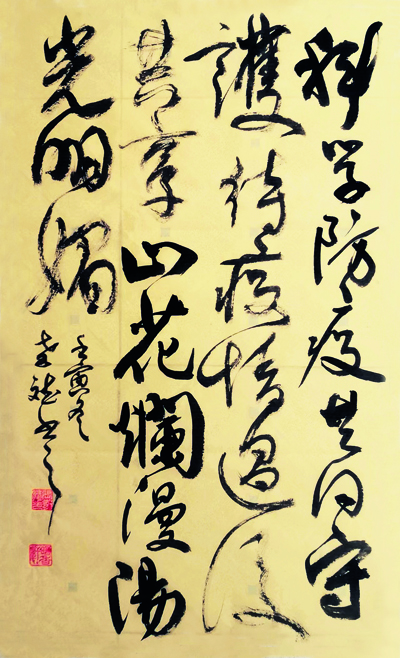 科学防疫共同守
護待疫情過後
共享山花爛漫陽
光明媚
壬寅冬
书之